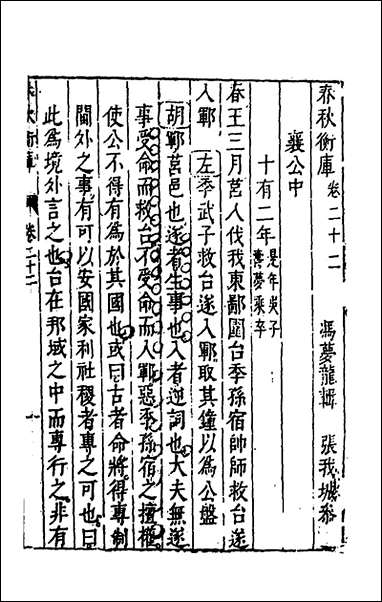 春秋衡庫卷二十二　馮夢龍輯　張我城參
襄公中
十有二年是年吳子壽夢乘卒
春王三月莒人伐我東鄙圍台季孫宿帥師救台遂
入鄆　左季武子救台遂入鄆取其鐘以爲公盤
胡鄆莒邑也遂者生事也入者逆詞也大夫無遂
事受命而救台不受命而入鄆惡季孫宿之擅權
使公不得有爲於其國也或曰古者命將得專制
閫外之事有可以安國家利社稷者專之可也曰
此爲境外言之也台在邦域之中而專行之非有
春秋衡庫　卷二十二　一